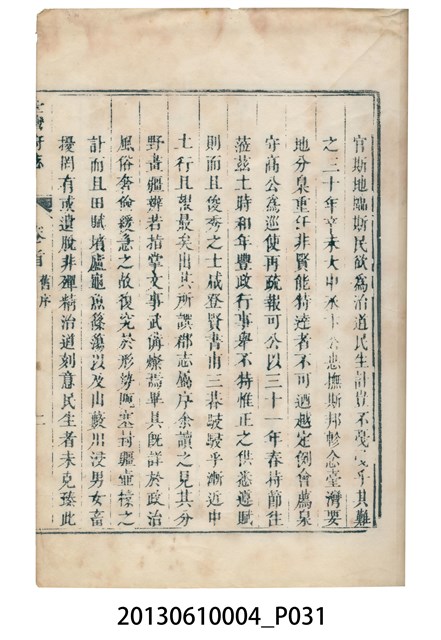 官斯地臨斯民欲為治道民生計豈不戞戞乎其難
之三十年辛未大中丞卞公悲撫斯邦軫念臺灣要
地分臬重任非賢能特達者不可迺越定例會薦泉
守高公為巡使再疏報可公以三十一年春持節往
蒞茲土時和年豐政行事舉不特惟正之供悉遵賦
則而且俊秀之士咸登賢書甫三暮駸駸乎漸近中
土行且報最矣出其所譔郡志屬序余讀之見其分
野畫疆辨若指掌文事武備燦焉畢具既詳於政治
風俗奢儉緩急之故復究於形勢阨塞封疆壺㯿之
計而且田賦墳廬龜魚篠簜以及山藪出浸男女畜
擾罔有或遺脫非殫精治道刻意民生者未克臻此
臺灣府志
卷首
舊序
二
20130610004_P031